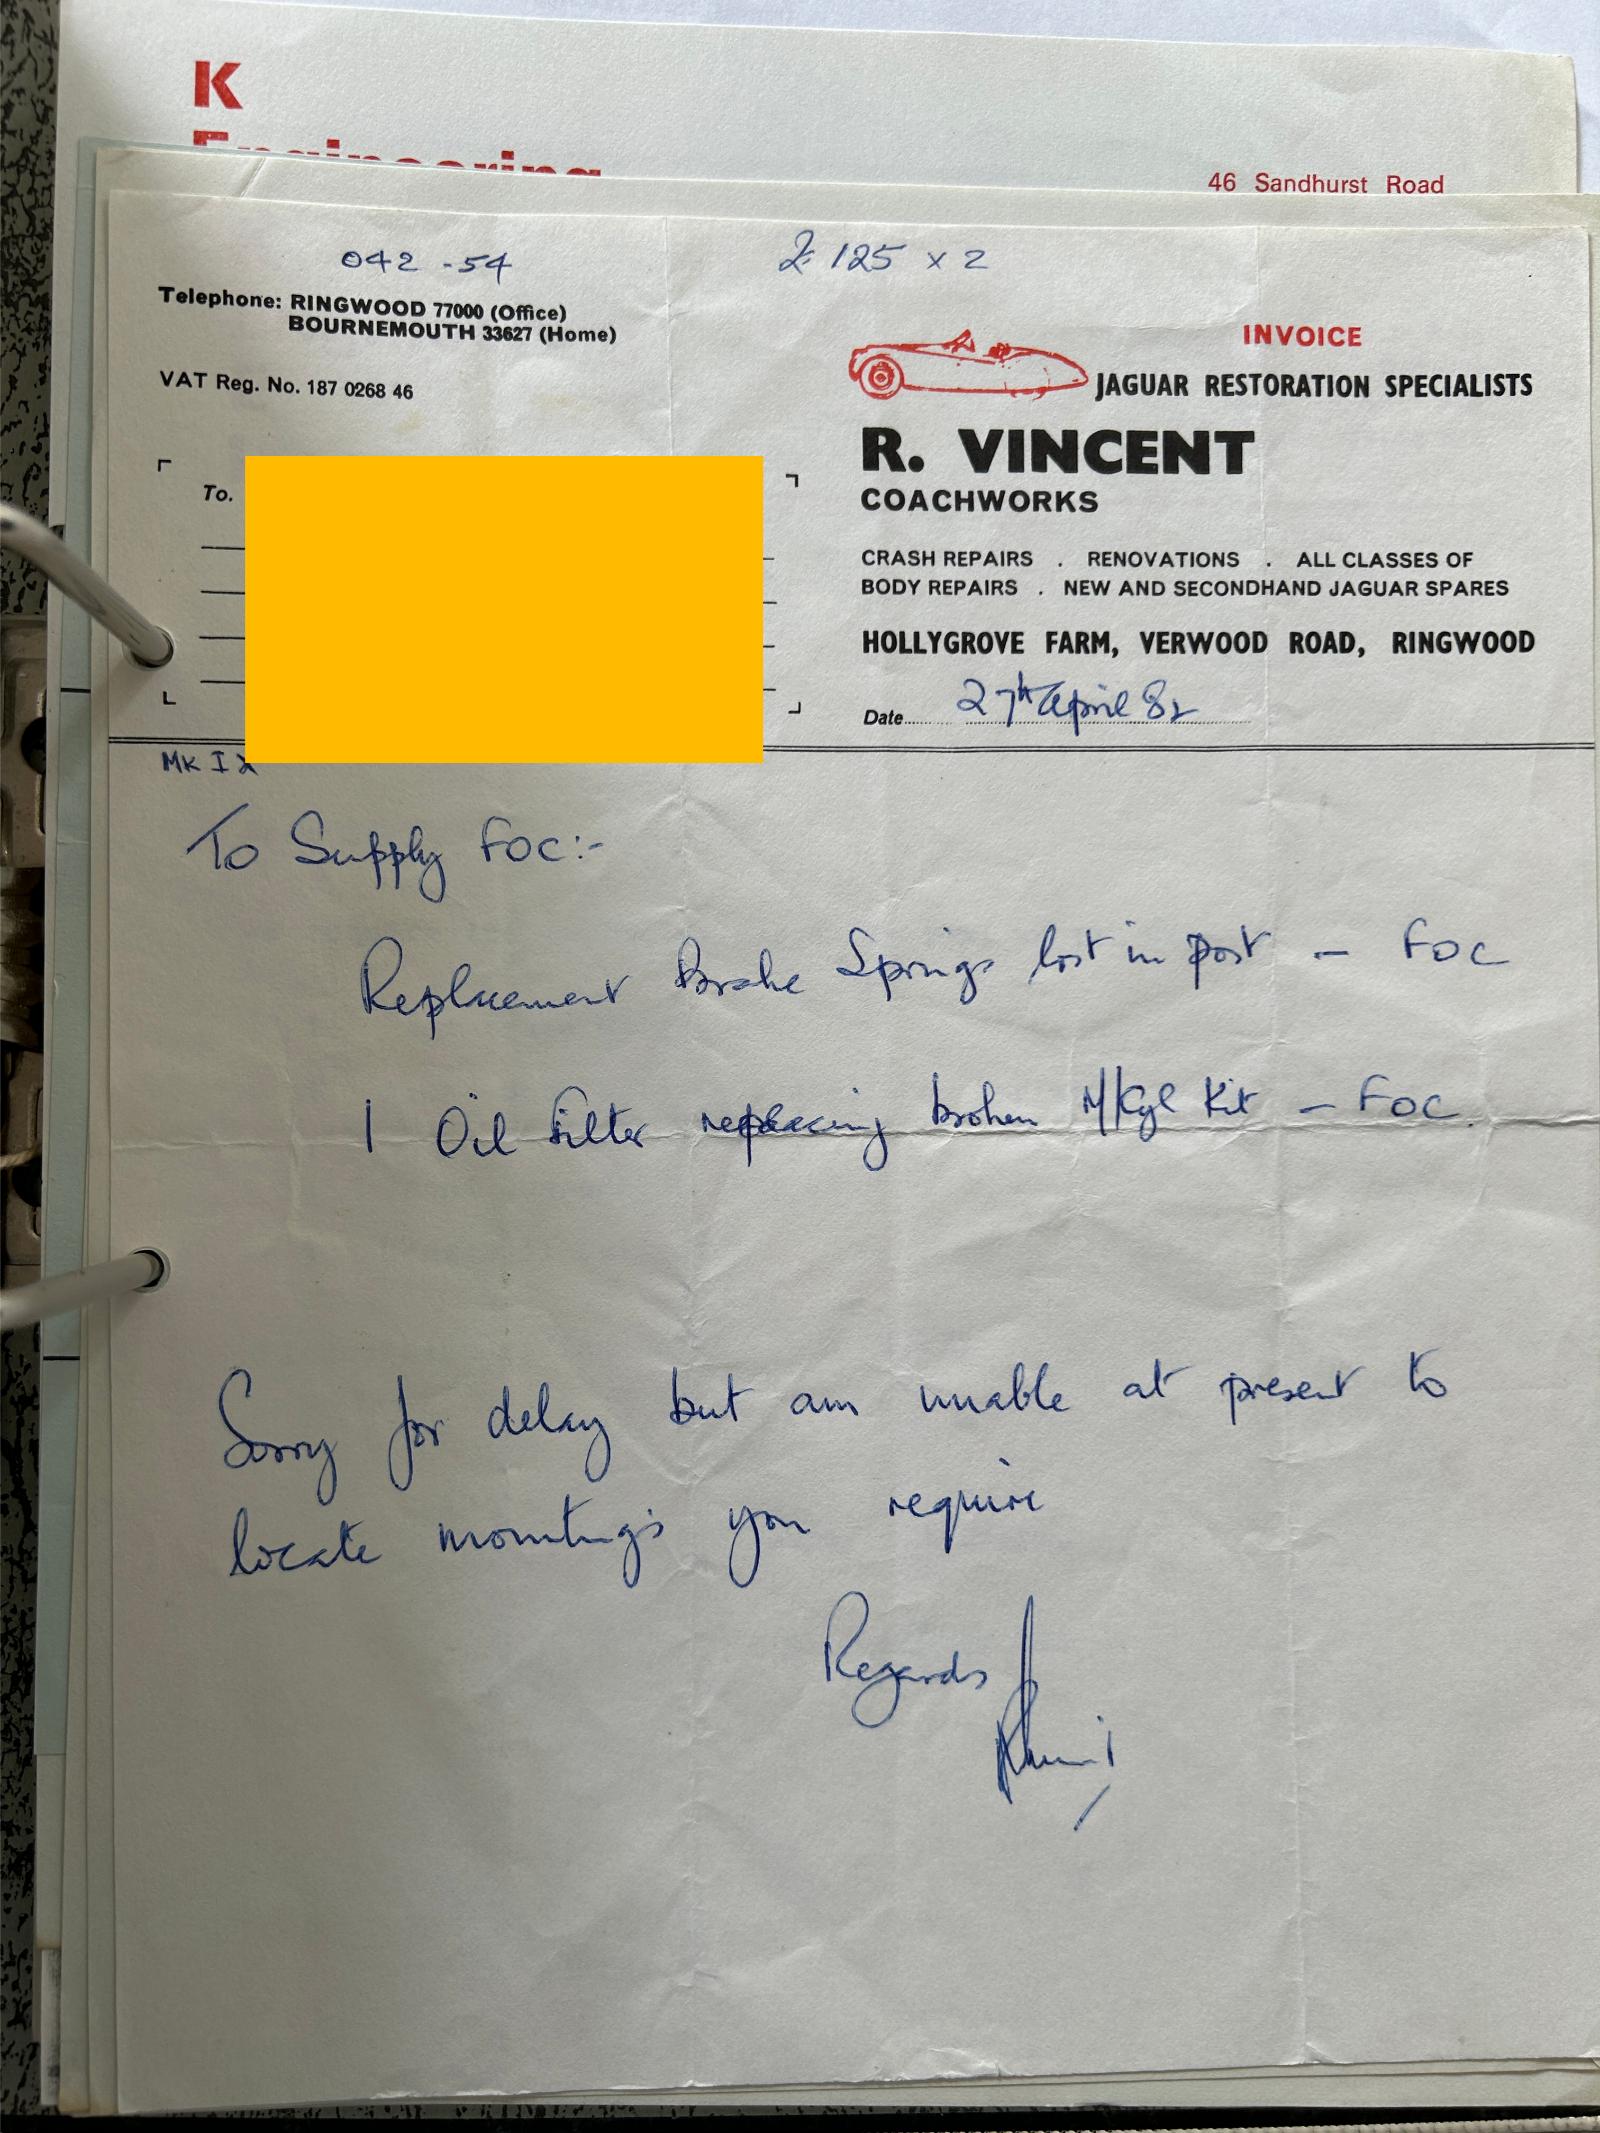 K
46 Sandhurst Road
042 -54
2.125 x 2
Telephone: RINGWOOD 77000 (Office)
BOURNEMOUTH 33627 (Home)
VAT Reg. No. 187 0268 46
INVOICE
JAGUAR RESTORATION SPECIALISTS
R. VINCENT
COACHWORKS
CRASH REPAIRS . RENOVATIONS . ALL CLASSES OF
BODY REPAIRS . NEW AND SECONDHAND JAGUAR SPARES
HOLLYGROVE FARM, VERWOOD ROAD, RINGWOOD
To.
Date 27th April 82
MK IX
To Supply FOC:-
Replacement Brake Springs lost in post - FOC
1 Oil filter replacing broken M/Cyl Kit - FOC
Sorry for delay but am unable at present to
locate mountings you require
Regards